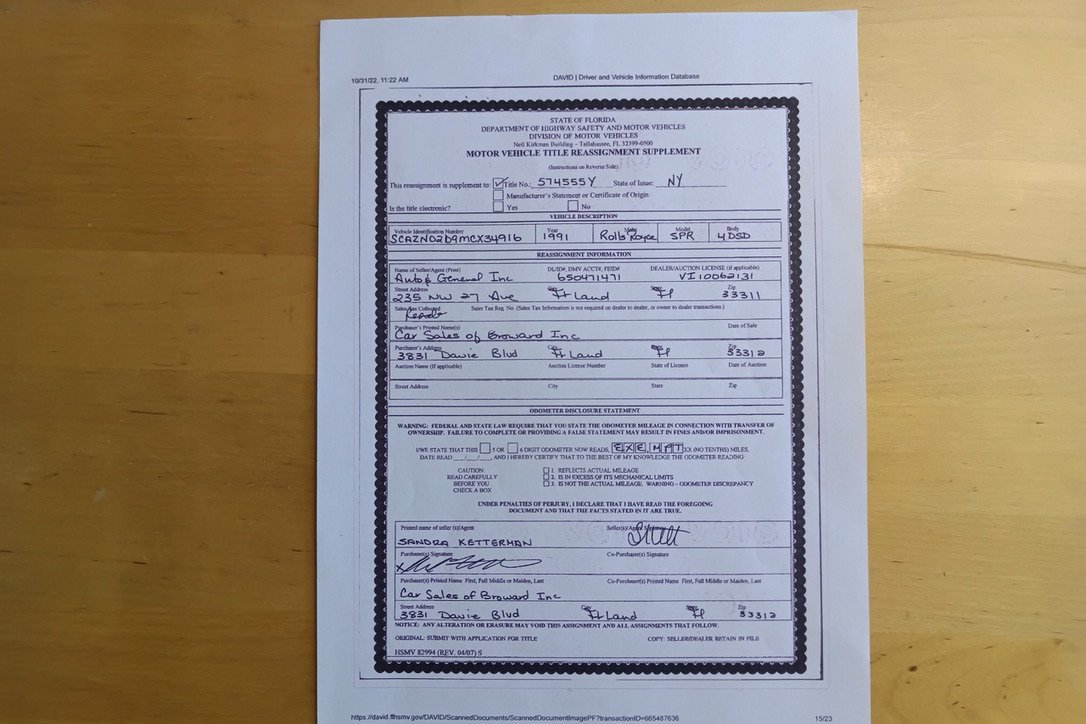 10/31/22, 11:22 AM DAVID | Driver and Vehicle Information Database
STATE OF FLORIDA
DEPARTMENT OF HIGHWAY SAFETY AND MOTOR VEHICLES
DIVISION OF MOTOR VEHICLES
Neil Kirkman Building – Tallahassee, FL 32399-0500
MOTOR VEHICLE TITLE REASSIGNMENT SUPPLEMENT
(Instructions on Reverse Side)
This reassignment is supplement to: Title No.: 574555Y State of Issue: NY
Manufacturer's Statement or Certificate of Origin
Is the title electronic? Yes No
VEHICLE DESCRIPTION
Vehicle Identification Number Year Make Model Body
SCAZN02D9MCX34916 1991 Rolls Royce SPR 4DSD
REASSIGNMENT INFORMATION
Name of Seller/Agent (Print) DL/ID#, DMV ACCT#, FEID# DEALER/AUCTION LICENSE (if applicable)
Auto & General Inc 650471471 VI10062131
Street Address City State Zip
235 NW 27 Ave Ft Land Fl 33311
Sales Tax Collected Sales Tax Reg No. (Sales Tax Information is not required on dealer to dealer, or owner to dealer transactions.)
Purchaser's Printed Name(s) Date of Sale
Car Sales of Broward Inc
Purchaser's Address City State Zip
3831 Davie Blud Ft Land Fl 33312
Auction Name (If applicable) Auction License Number State of License Date of Auction
Street Address City State Zip
ODOMETER DISCLOSURE STATEMENT
WARNING: FEDERAL AND STATE LAW REQUIRE THAT YOU STATE THE ODOMETER MILEAGE IN CONNECTION WITH TRANSFER OF
OWNERSHIP. FAILURE TO COMPLETE OR PROVIDING A FALSE STATEMENT MAY RESULT IN FINES AND/OR IMPRISONMENT.
I/WE STATE THAT THIS 5 OR 6 DIGIT ODOMETER NOW READS, EXEMPT XX (NO TENTHS) MILES,
DATE READ __/__/__, AND I HEREBY CERTIFY THAT TO THE BEST OF MY KNOWLEDGE THE ODOMETER READING:
CAUTION 1. REFLECTS ACTUAL MILEAGE
READ CAREFULLY 2. IS IN EXCESS OF ITS MECHANICAL LIMITS
BEFORE YOU 3. IS NOT THE ACTUAL MILEAGE. WARNING – ODOMETER DISCREPANCY
CHECK A BOX
UNDER PENALTIES OF PERJURY, I DECLARE THAT I HAVE READ THE FOREGOING
DOCUMENT AND THAT THE FACTS STATED IN IT ARE TRUE.
Printed name of seller (s)/Agent Seller(s)/Agent Signature
SANDRA KETTERMAN
Purchaser(s) Signature Co-Purchaser(s) Signature
X
Purchaser(s) Printed Name First, Full Middle or Maiden, Last Co-Purchaser(s) Printed Name First, Full Middle or Maiden, Last
Car Sales of Broward Inc
Street Address City St Zip
3831 Davie Blud Ft Land Fl 33312
NOTICE: ANY ALTERATION OR ERASURE MAY VOID THIS ASSIGNMENT AND ALL ASSIGNMENTS THAT FOLLOW.
ORIGINAL: SUBMIT WITH APPLICATION FOR TITLE COPY: SELLER/DEALER RETAIN IN FILE
HSMV 82994 (REV. 04/07) S
https://david.flhsmv.gov/DAVID/ScannedDocuments/ScannedDocumentImagePF?transactionID=665487636 15/23